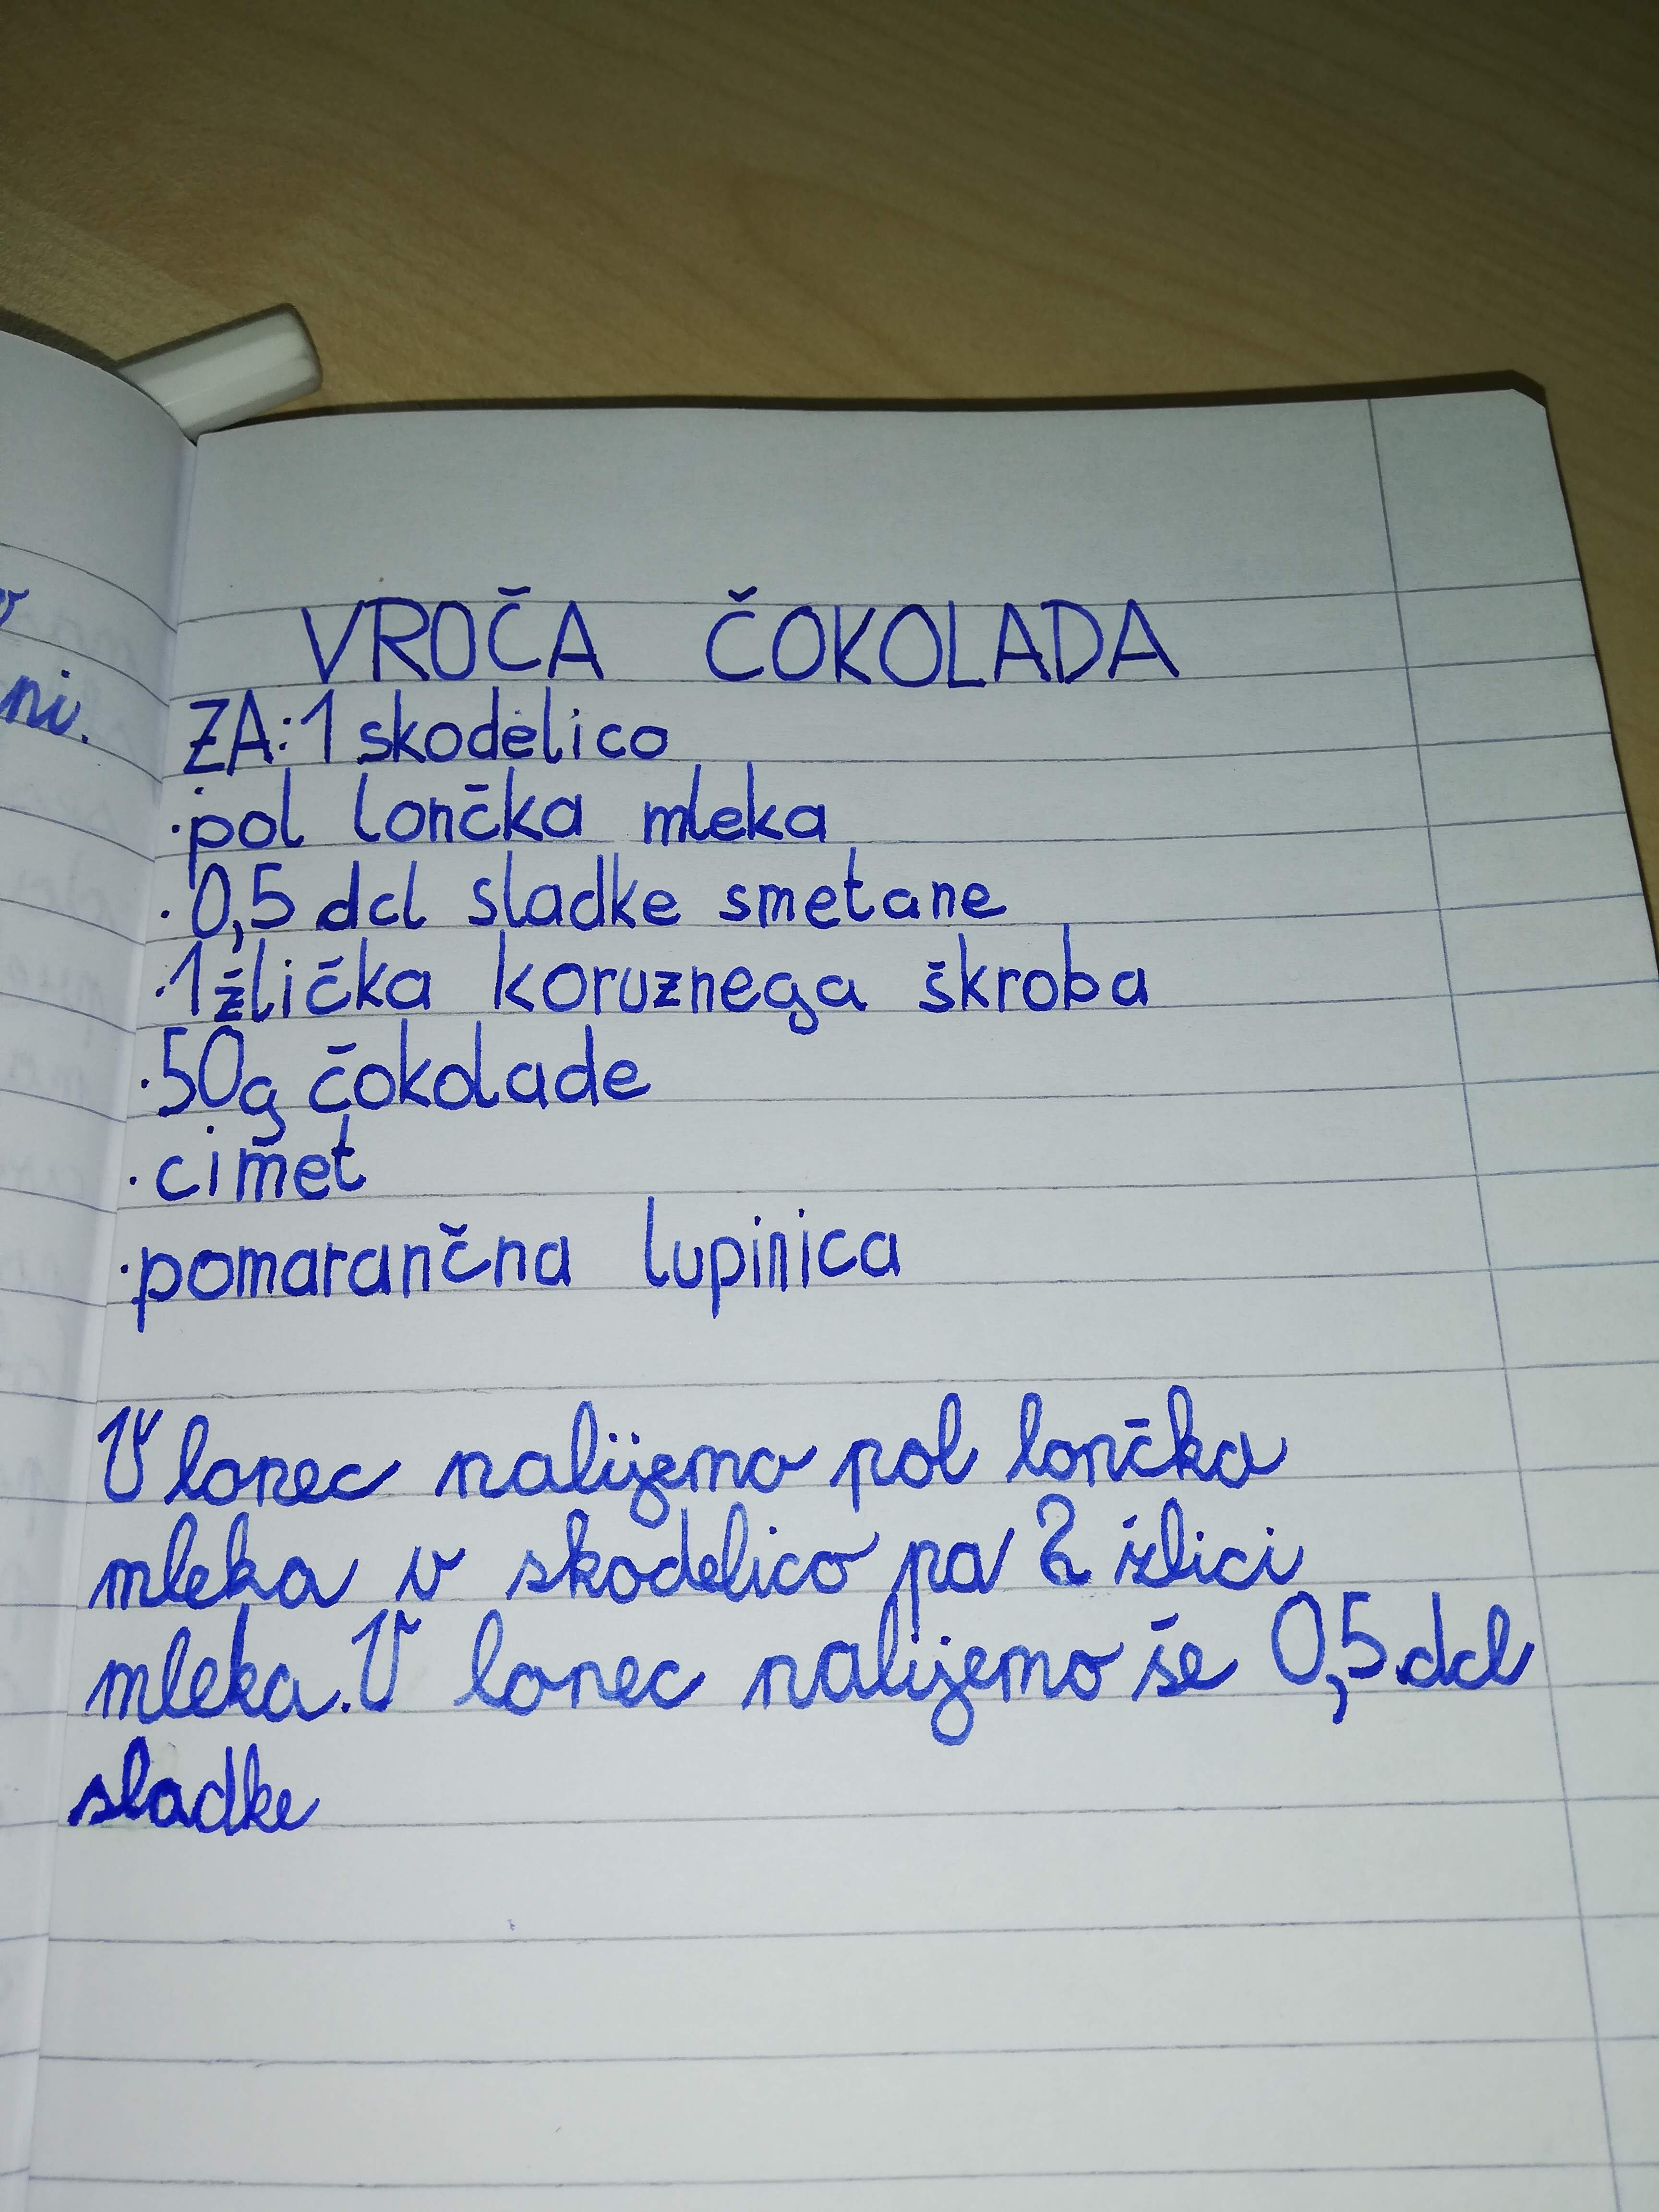 ni.
VROČA ČOKOLADA
ZA: 1 skodelico
· pol lončka mleka
· 0,5 dcl sladke smetane
· 1 žlička koruznega škroba
· 50g čokolade
· cimet
· pomarančna lupinica
V lonec nalijemo pol lončka
mleka v skodelico pa 2 žlici
mleka. V lonec nalijemo še 0,5 dcl
sladke